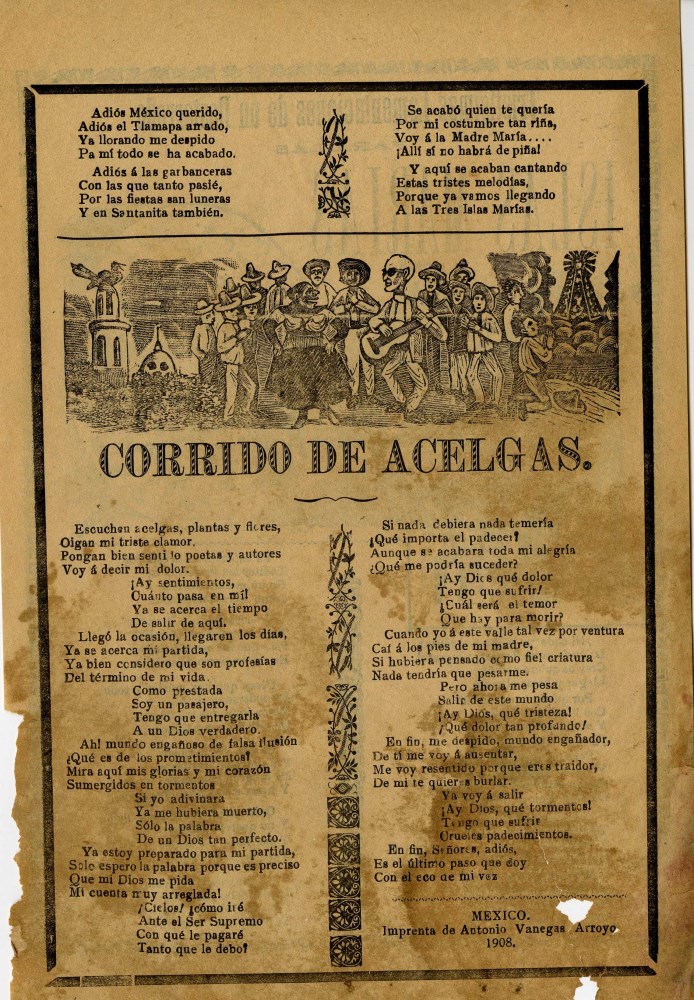 Adiós México querido,
Adiós el Tlamapa amado,
Ya llorando me despido
Pa mí todo se ha acabado.
Adiós á las garbanceras
Con las que tanto pasié,
Por las fiestas san luneras
Y en Santanita también.
Se acabó quien te quería
Por mi costumbre tan riña,
Voy á la Madre María....
¡Allí sí no habrá de piña!
Y aquí se acaban cantando
Estas tristes melodías,
Porque ya vamos llegando
A las Tres Islas Marías.
CORRIDO DE ACELGAS.
Escuchen acelgas, plantas y flores,
Oigan mi triste clamor.
Pongan bien sentido poetas y autores
Voy á decir mi dolor.
¡Ay sentimientos,
Cuánto pasa en mí!
Ya se acerca el tiempo
De salir de aquí.
Llegó la ocasión, llegaron los días,
Ya se acerca mi partida,
Ya bien considero que son profesías
Del término de mi vida.
Como prestada
Soy un pasajero,
Tengo que entregarla
A un Dios verdadero.
Ah! mundo engañoso de falsa ilusión
¿Qué es de los prometimientos?
Mira aquí mis glorias y mi corazón
Sumergidos en tormentos
Si yo adivinara
Ya me hubiera muerto,
Sólo la palabra
De un Dios tan perfecto.
Ya estoy preparado para mi partida,
Solo espero la palabra porque es preciso
Que mi Dios me pida
Mi cuenta muy arreglada!
¡Cielos! ¿cómo iré
Ante el Ser Supremo
Con qué le pagaré
Tanto que le debo?
Si nada debiera nada temería
¿Qué importa el padecer?
Aunque se acabara toda mi alegría
¿Qué me podría suceder?
¡Ay Dios qué dolor
Tengo que sufrir!
¿Cuál será el temor
Que hay para morir?
Cuando yo á este valle tal vez por ventura
Caí á los pies de mi madre,
Si hubiera pensado como fiel criatura
Nada tendría que pesarme.
Pero ahora me pesa
Salir de este mundo
¡Ay Dios, qué tristeza!
¡Qué dolor tan profundo!
En fin, me despido, mundo engañador,
De tí me voy á ausentar,
Me voy resentido porque eres traidor,
De mi te quieres burlar.
Ya voy á salir
¡Ay Dios, qué tormentos!
Tengo que sufrir
Crueles padecimientos.
En fin, Señores, adiós,
Es el último paso que doy
Con el eco de mi voz
MEXICO.
Imprenta de Antonio Vanegas Arroyo
1908.